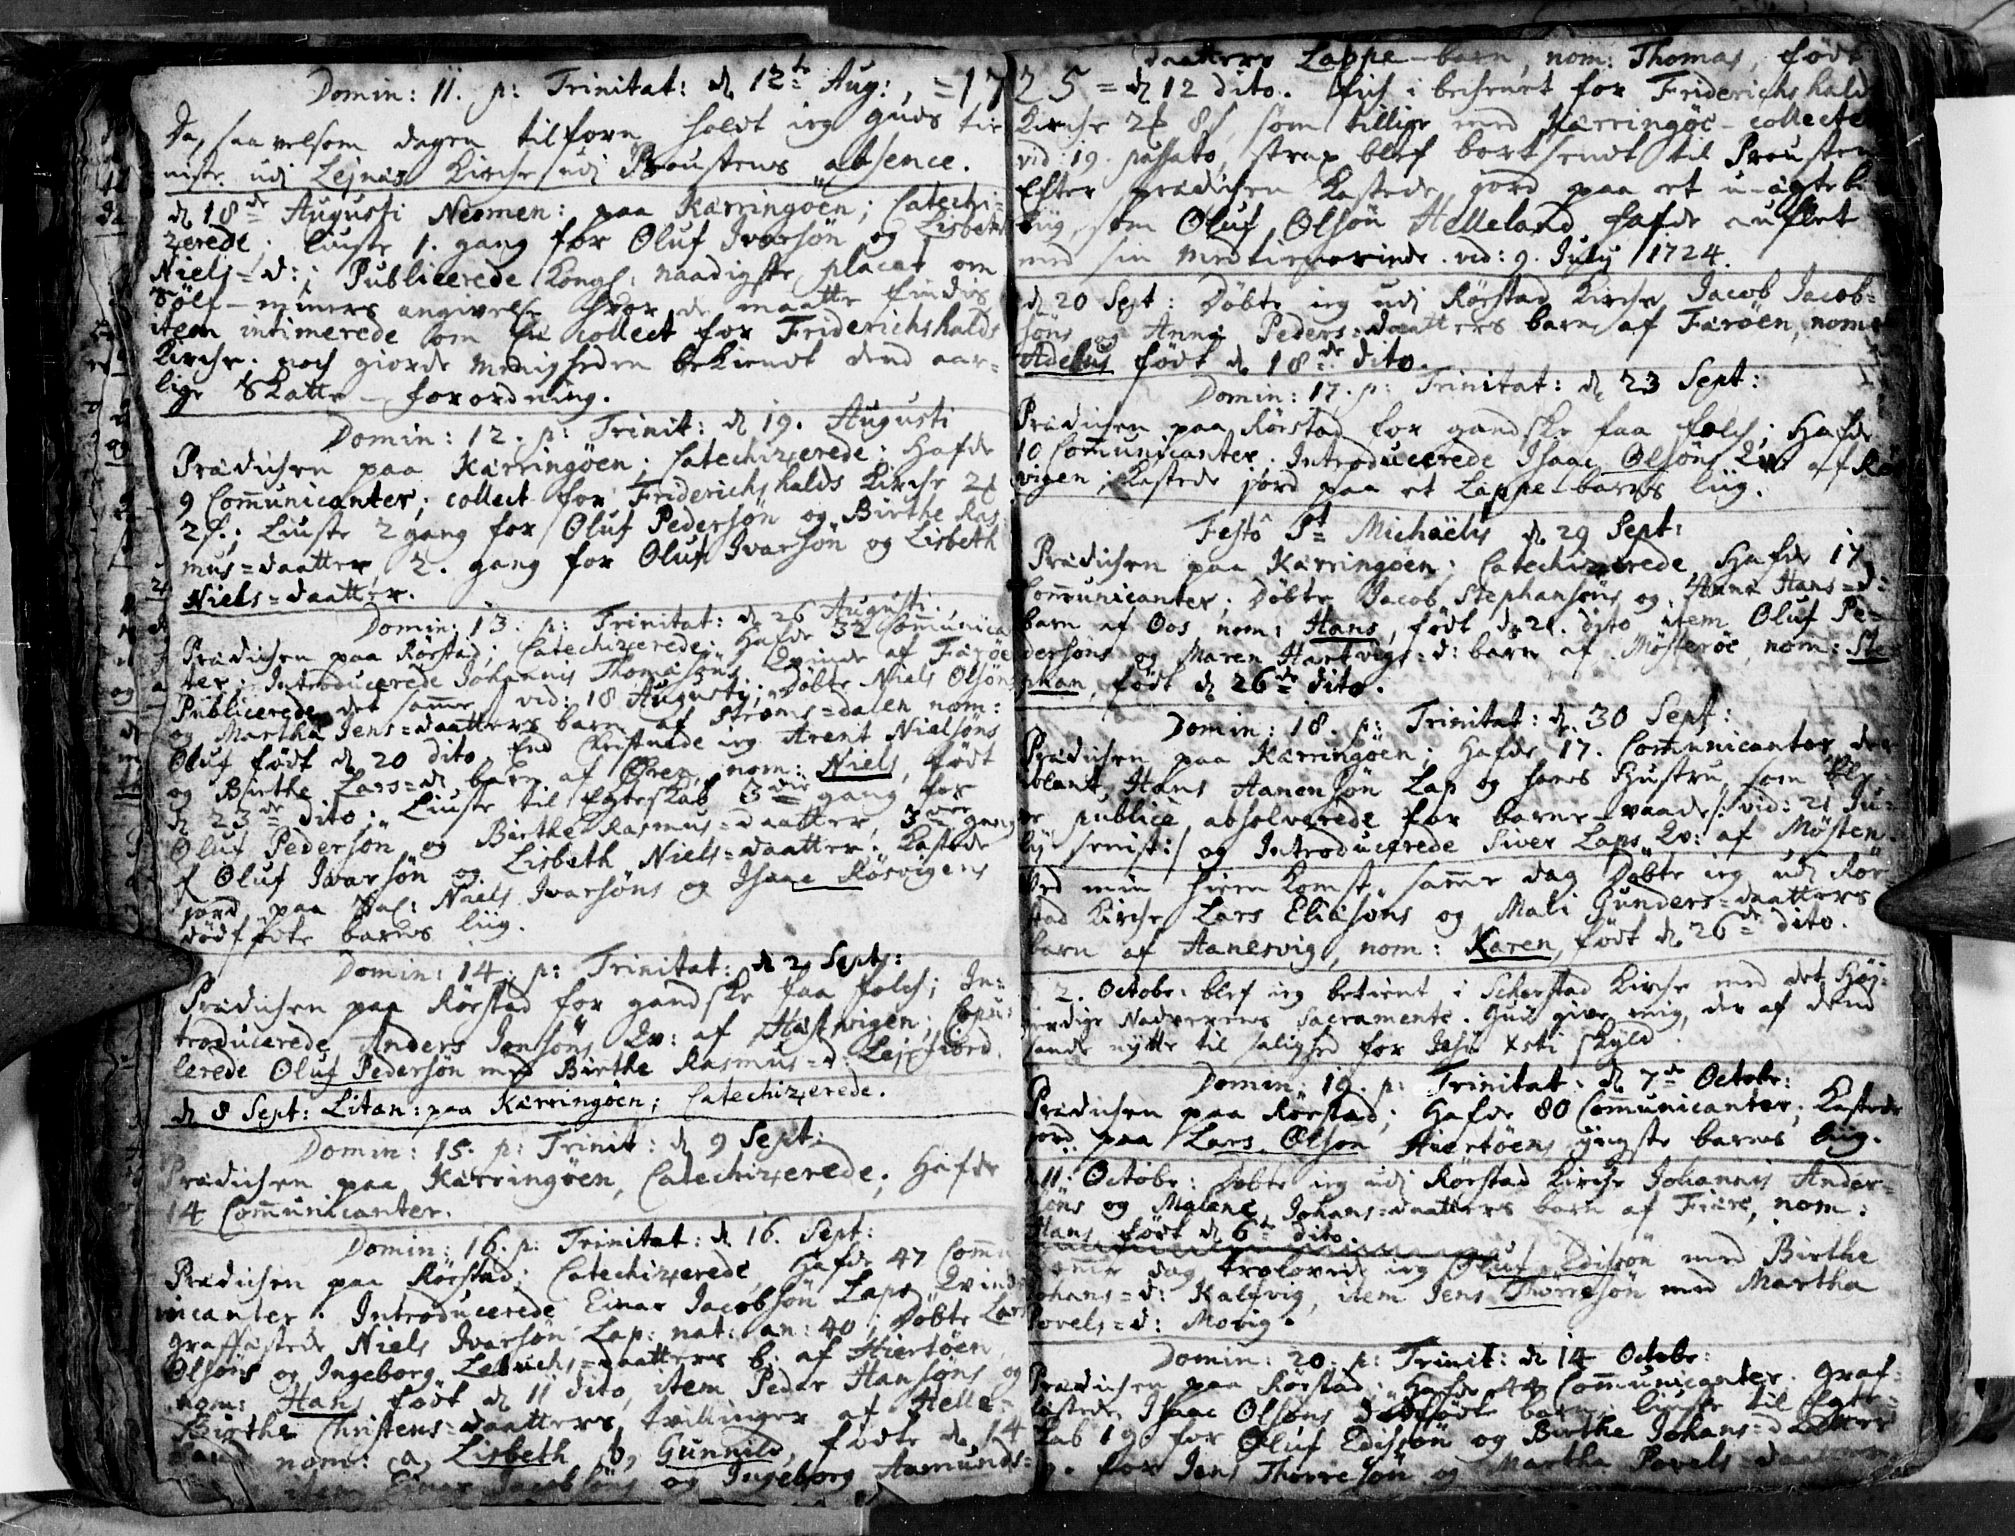 Domin: 11. p: Trinitat: d 12te Aug:, =17
Da, saavelsom dagen tilforn holdt ieg Guds tie
niste udi Lejnæs Kirche udi Proustens absence.
d 18de Augusti Neomen: paa Kærringøen; Catechi-
zerede; liuste 1. gang for Oluf Ivarsøn og Lisbeth
Niels=d: Publicerede Kongl: naadigste placat om
Sølf-miners angivelse hvor de maatte findis
item intimerede om en collect for Friderichshalds
Kirche. noch giorde menigheden bekiendt dend aar-
lige Skatte-forordning.
Domin: 12. p: Trinit: d 19. Augusti
Prædichen paa Kærringøen; Catechizerede; Hafde
9 Communicanter; collect for Friderichshalds Kirche 2
2 s.; Liuste 2 gang for Oluf Pedersøn og Birthe Ras
mus=daatter, 2. gang for Oluf Ivarsøn og Lisbeth
Niels=daatter.
Domin: 13. p: Trinitat: d 26 Augusti.
Prædichen paa Rørstad; Catechizerede; Hafde 32 Communica
ter; Introducerede Johannis Thomæsøns Qvinde af Færøe
Publicerede det samme vid: 18 Augusti; Døbte Niels Olsøns
og Martha Jens=daatters barn af Strøms=dalen nom:
Oluf født d 20 dito End Christnede ieg Arent Nielsøns
og Birthe Lars=d: barn af Øren, nom: Niels, født
d 23de dito; Liuste til Egteskab 3die gang for
Oluf Pedersøn og Birthe Rasmus=daatter, 3die gang
f Oluf Ivarsøn og Lisbeth Niels=daatter. Kastede
jord paa Sal: Niels Ivarsøns og Isaac Røsvigens
dødfødte barns liig.
Domin: 14. p: Trinitat: d 2 Sept:
Prædichen paa Rørstad for gandske faa folch; In-
troducerede Anders Jonsøns Qv: af Hestvigen; Copu-
lerede Oluf Pedersøn med Birthe Rasmus=d: Lejsfiord.
d 8 Sept: Litan: paa Kærringøen; Catechizerede.
Domin: 15. p: Trinit: d 9 Sept:
Prædichen paa Kærringøen, Catechizerede; Hafde
14 Communicanter.
Domin: 16. p: Trinitat: d 16. Sept:
Prædichen paa Rørstad; Catechizerede, Hafde 47 Commu
nicanter. Introducerede Einar Jacobsøn Laps Qvinde
graffæstede Niels Ivarsøn Lap: nat: an: 40; Døbte Lars
Olsøns og Ingeborg daatters b. af Hiertøen,
nom: Hans født d 11 dito, item Peder Hansøns og
Birthe Christens=daatters tvillinger af Helle-
land nom: a, Lisbeth b, Gunnild, fødte d 14
item Einar Jacobsøns og Ingeborg Aamunds=
daatters Lappe-barn, nom: Thomas, født
25 = d 12 dito. Fich i bechent for Friderichshald
Kirche 2 8 s, som tillige med Kærringøe-collecte
vid: 19. passato, strax blef bortsendt til Prousten
Efter prædichen Kastede jord paa et u-ægte b
liig, som Oluf Olsøn Helleland hafde auflet
med sin medtienerinde. vid: 9. July 1724.
d 20 Sept: Døbte ieg udi Rørstad Kirche Jacob Jacob-
søns og Anne Peders=daatters barn af Færøen, nom:
Adelus født d 18de dito.
Domin: 17. p: Trinitat: d 23 Sept:
Prædichen paa Rørstad for gandske faa folch; Hafde
10 Communicanter. Introducerede Isaac Olsøns Qv: af Røs
vigen; Kastede jord paa et Lappe-barns liig.
Festo St Michaëlis d 29 Sept:
Prædichen paa Kærringøen; Catechizerede Hafde 17
Communicanter; Døbte Jacob Stephansøns og Anna Hans=d:
barn af Oos nom: Hans, født d 21. dito item Oluf Pe-
dersøns og Maren Hartvigs=d: barn af Møsterøe, nom: Ste
phan, født d 26de dito.
Domin: 18. p: Trinitat: d 30 Sept:
Prædichen paa Kærringøen; Hafde 17. Communicanter der
iblant Hans Aanensøn Lap og hans Hustru, som
publicè absolverede for barne-vaade /: vid: 21 Ju-
ly :/ og Introducerede Siver Laps Qv: af Møsten.
Ved min hiem Komst, samme dag Døbte ieg udi Rør
stad Kirche Lars Eliasøns og Mali Gunders=daatters
barn af Aanesvig, nom: Karen, født d 26de dito.
2. Octobr: blef ieg betient i Scherstad Kirche med det Høy-
verdige Nadverens Sacramente. Gud give mig, der af dend
sande nytte til salighed for Jesu Xsti skyld.
Domin: 19. p: Trinitat: d 7de Octobr:
Prædichen paa Rørstad; Hafde 80 Communicanter; Kastede
jord paa Lars Olson Hiertøens yngste barns liig.
11. Octobr: Døbte ieg udi Rørstad Kirche Johannis Ander-
søns og Malene Johans=daatters barn af Fiære, nom:
Hans født d 6te dito.
Samme dag trolovede ieg Oluf Edissøn med Birthe
Johans=d: Kalfvig, item Jens Thorresøn med Martha
Povels=d: Movig.
Domin: 20. p: Trinit: d 14 Octobr:
Prædichen paa Rørstad; Hafde 44 Communicanter. Graf-
fæstede Isaac Olsøns dødfødte barn; liuste til Egte-
skab 1 g. for Oluf Edissøn og Birthe Johans=daatter
g. for Jens Thorresøn og Martha Povels=daatter